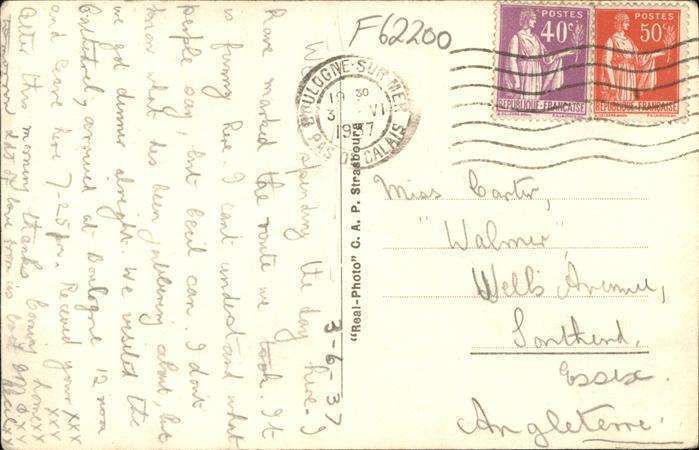 We are spending the day here. I
have marked the route we took. It
is funny here. I cant understand what
people say, but Cecil can. I dont
know what hes been jabbering about, but
we got dinner alright. We visited the
Cathedral, arrived at Boulogne 12 noon
and leave here 7-25 pm. Received your xxx
letter this morning thanks. Coming home xx
tomorrow. Lots of love from us both
3-6-37
"Real-Photo" C. A. P. Strasbourg
F62200
BOULOGNE-SUR-MER
19 30
3 VI
1937
PAS DE CALAIS
POSTES
40c
REPUBLIQUE-FRANCAISE
POSTES
50c
REPUBLIQUE-FRANCAISE
Miss Carter,
"Walmer",
Wells Avenue,
Southend.
Essex.
Angleterre.